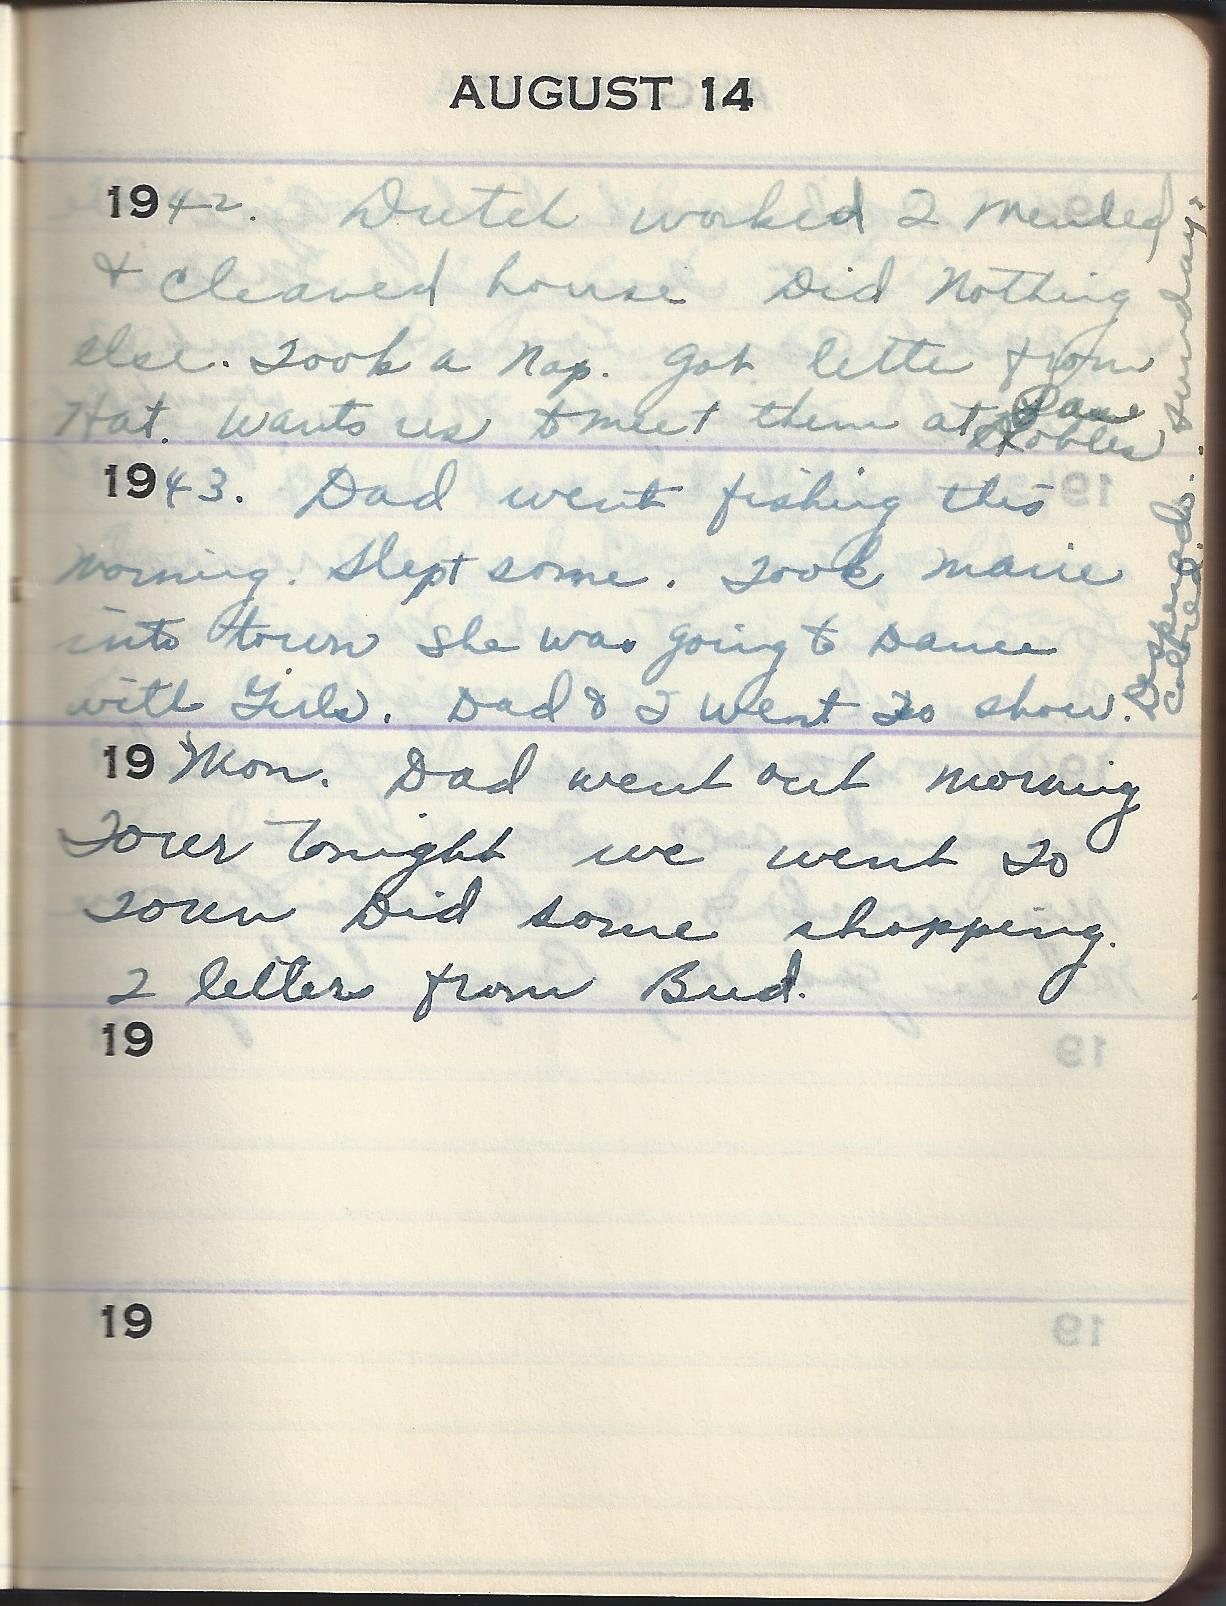 AUGUST 14
1942. Dutch worked 2 I Mended
& cleaned house Did Nothing
else. Took a Nap. Got letter from
Hat. Wants us to meet them at Paso
Robles
Sunday.
1943. Dad went fishing this
morning. Slept some. Took Marie
into town she was going to Dance
with Girls. Dad & I went to show.
Desperados.
colored.
19 Mon. Dad went out morning
Tower Tonight we went To
Town Did some shopping.
2 letters from Bud.
19
19